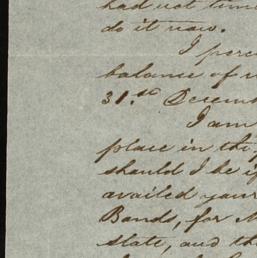 had not time
do it now.
I perc
balance of
31.st Decem
I am
place in the
should I be i
availed your
Bonds, for
state, and th